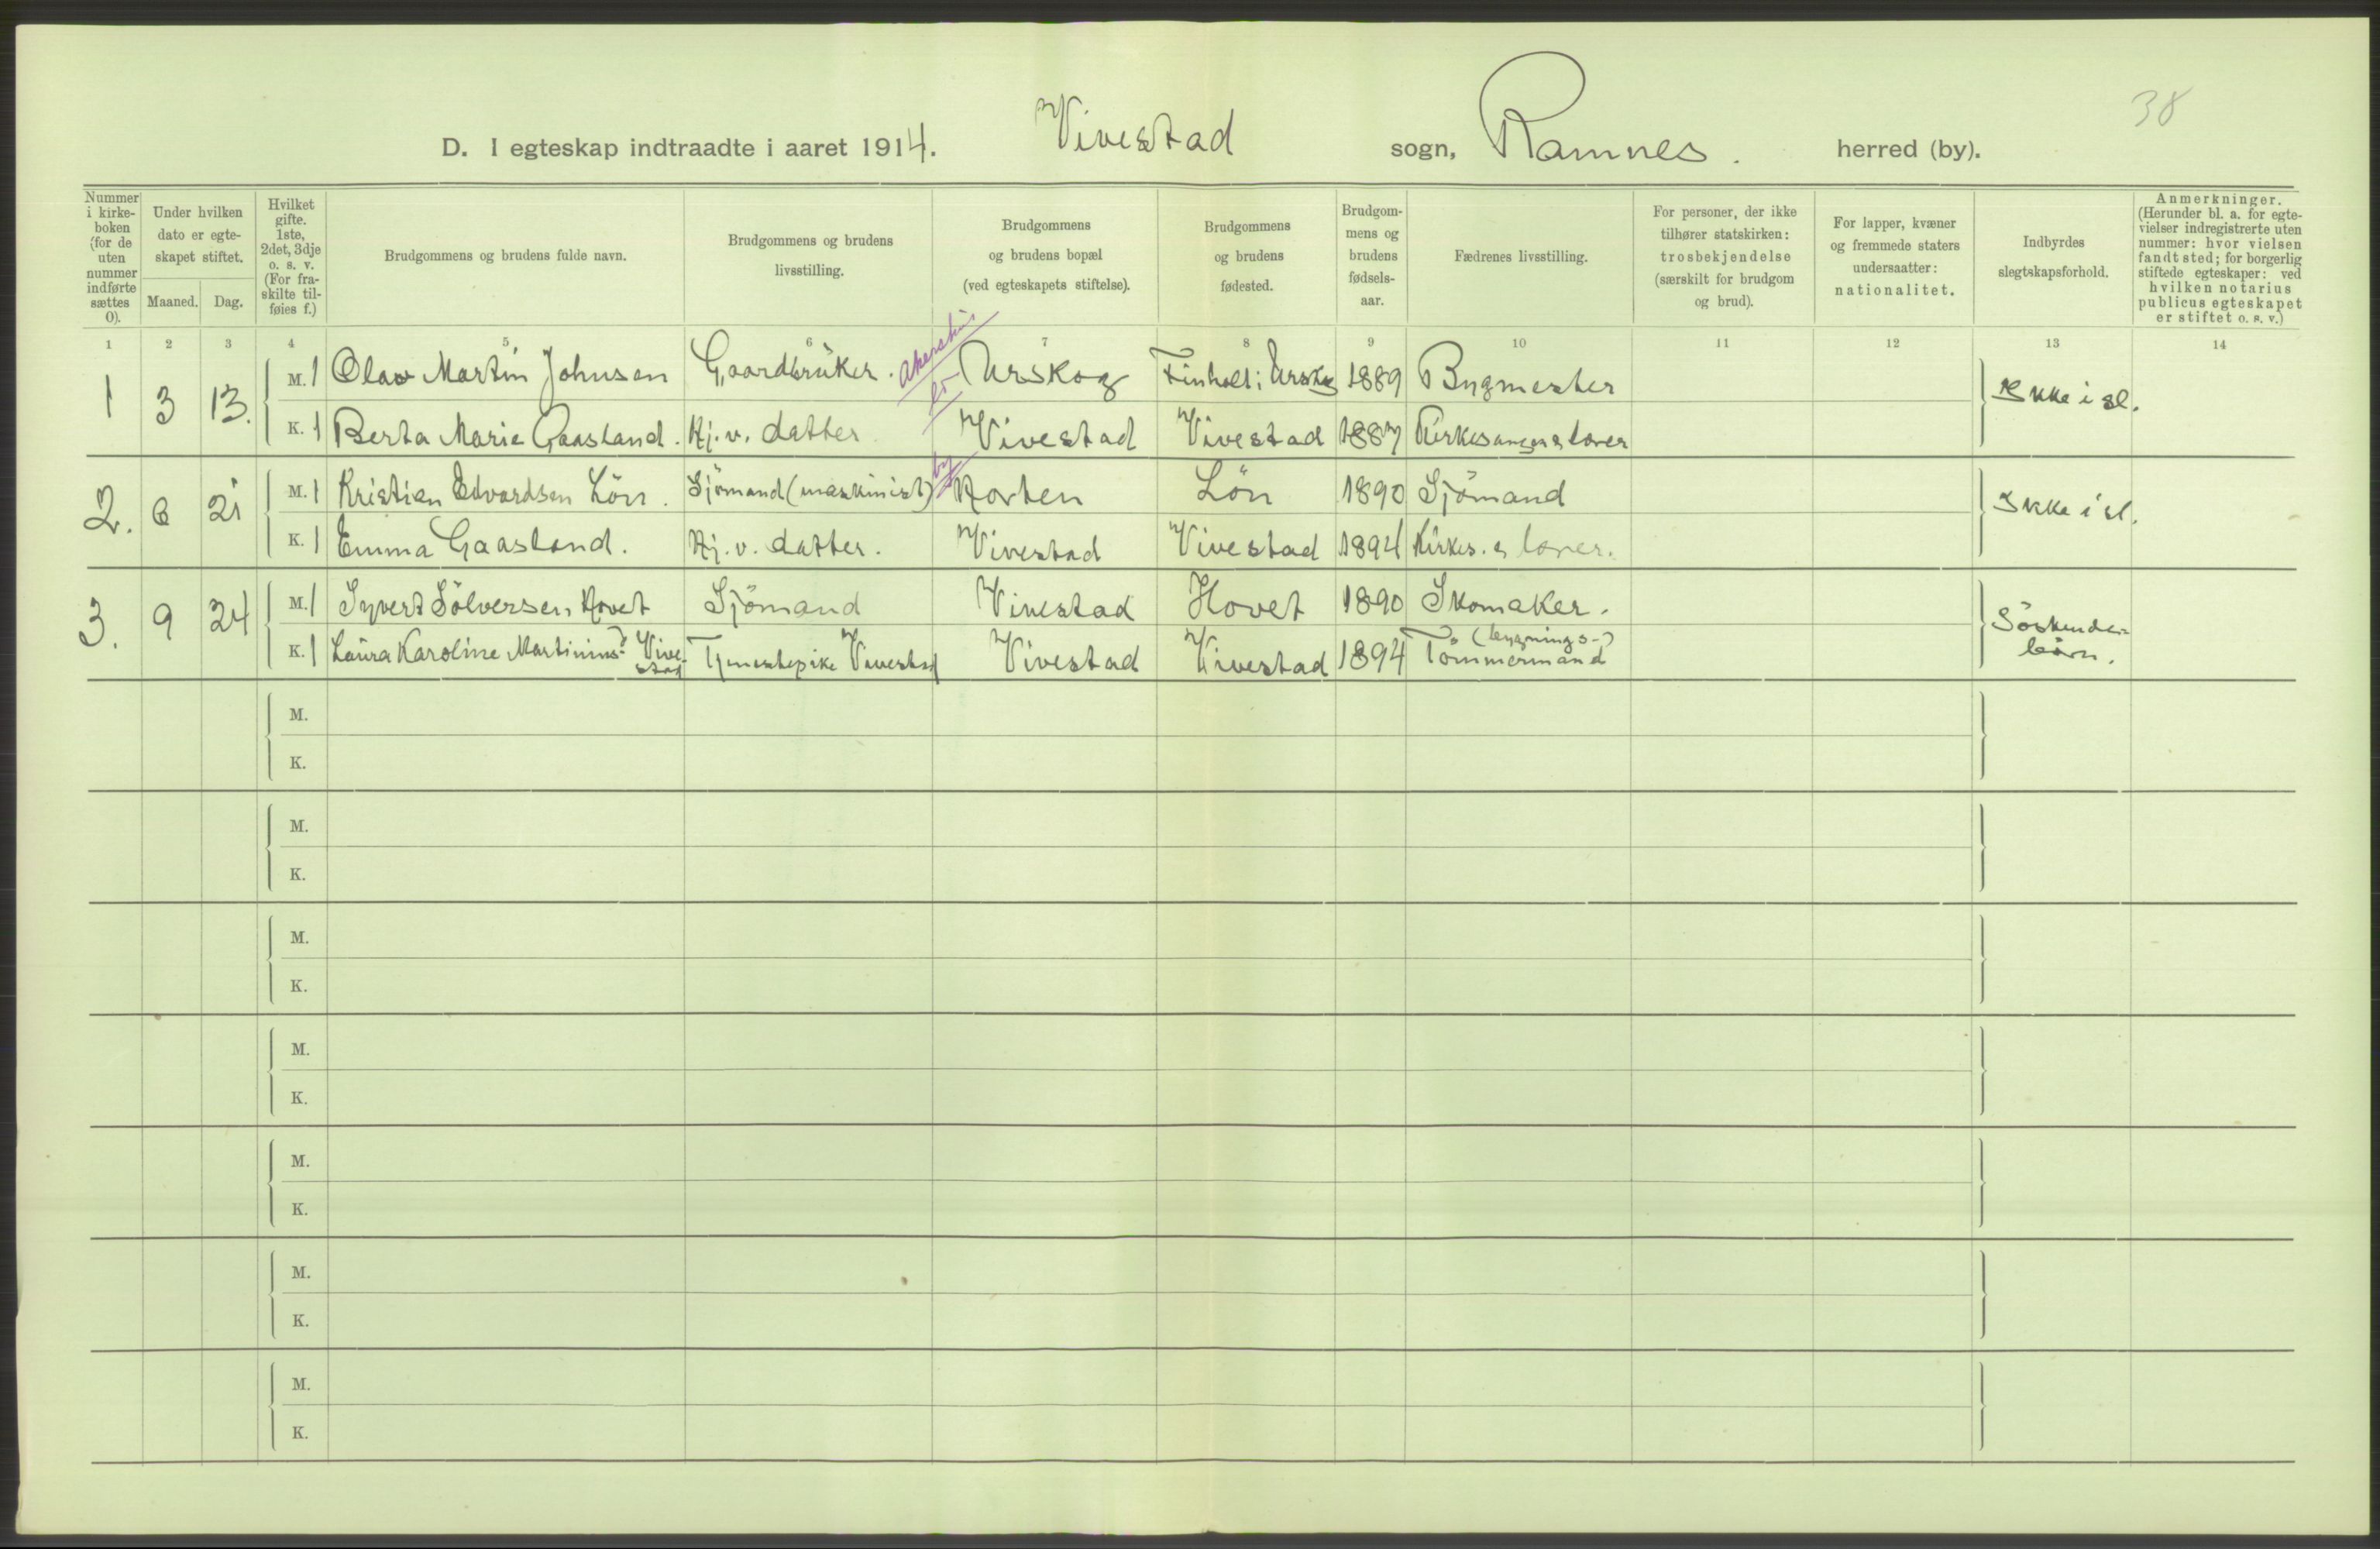 38
D. I egteskap indtraadte i aaret 1914. Vivestad sogn, Ramnes. herred (by).
Nummer i kirke-boken (for de uten nummer indførte sættes 0).
Under hvilken dato er egte-skapet stiftet.
Maaned. Dag.
Hvilket gifte. 1ste, 2det, 3dje o. s. v. (For fra-skilte til-føies f.)
Brudgommens og brudens fulde navn.
Brudgommens og brudens livsstilling.
Brudgommens og brudens bopæl (ved egteskapets stiftelse).
Brudgommens og brudens fødested.
Brudgom-mens og brudens fødsels-aar.
Fædrenes livsstilling.
For personer, der ikke tilhører statskirken: trosbekjendelse (særskilt for brudgom og brud).
For lapper, kvæner og fremmede staters undersaatter: nationalitet.
Indbyrdes slegtskapsforhold.
Anmerkninger. (Herunder bl. a. for egte-vielser indregistrerte uten nummer: hvor vielsen fandt sted; for borgerlig stiftede egteskaper: ved hvilken notarius publicus egteskapet er stiftet o. s. v.)
1 2 3 4 5 6 7 8 9 10 11 12 13 14
Akershus
1 3 13. M. 1 Olav Martin Johnsen Gaardbrüker. Urskog Finholt i Urskog 1889 Bygmester Ikke i sl.
K. 1 Berta Marie Gaasland. Hj. v. datter Vivestad Vivestad 1887 Kirkesanger & lærer
by
2. 6 21 M. 1 Kristian Edvardsen Lön. Sjömand (maskinist) Horten Lön 1890 Sjömand Ikke i sl.
K. 1 Emma Gaasland. Hj. v. datter. Vivestad Vivestad 1894 Kirkes. & lærer.
3. 9 24 M. 1 Syvert Sölversen Hovet Sjömand Vivestad Hovet 1890 Skomaker. Söskende-
börn.
(bygnings-)
K. 1 Laüra Karoline Martinius? Vive-
stad Tjenestepike Vivestad Vivestad Vivestad 1894 Tömmermand
M.
K.
M.
K.
M.
K.
M.
K.
M.
K.
M.
K.
M.
K.